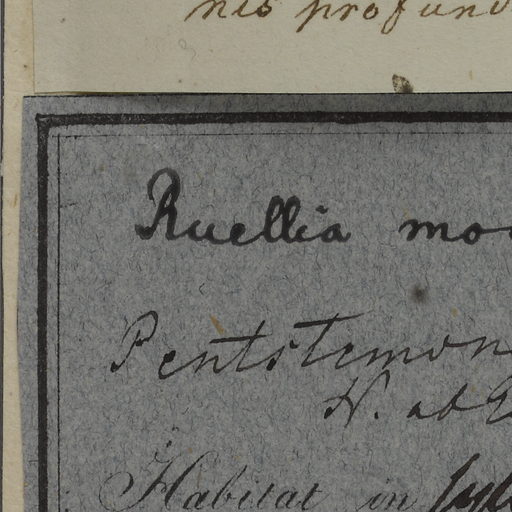 nis profund
Ruellia mo
Pentstemon
H. ab
Habitat in Sylv